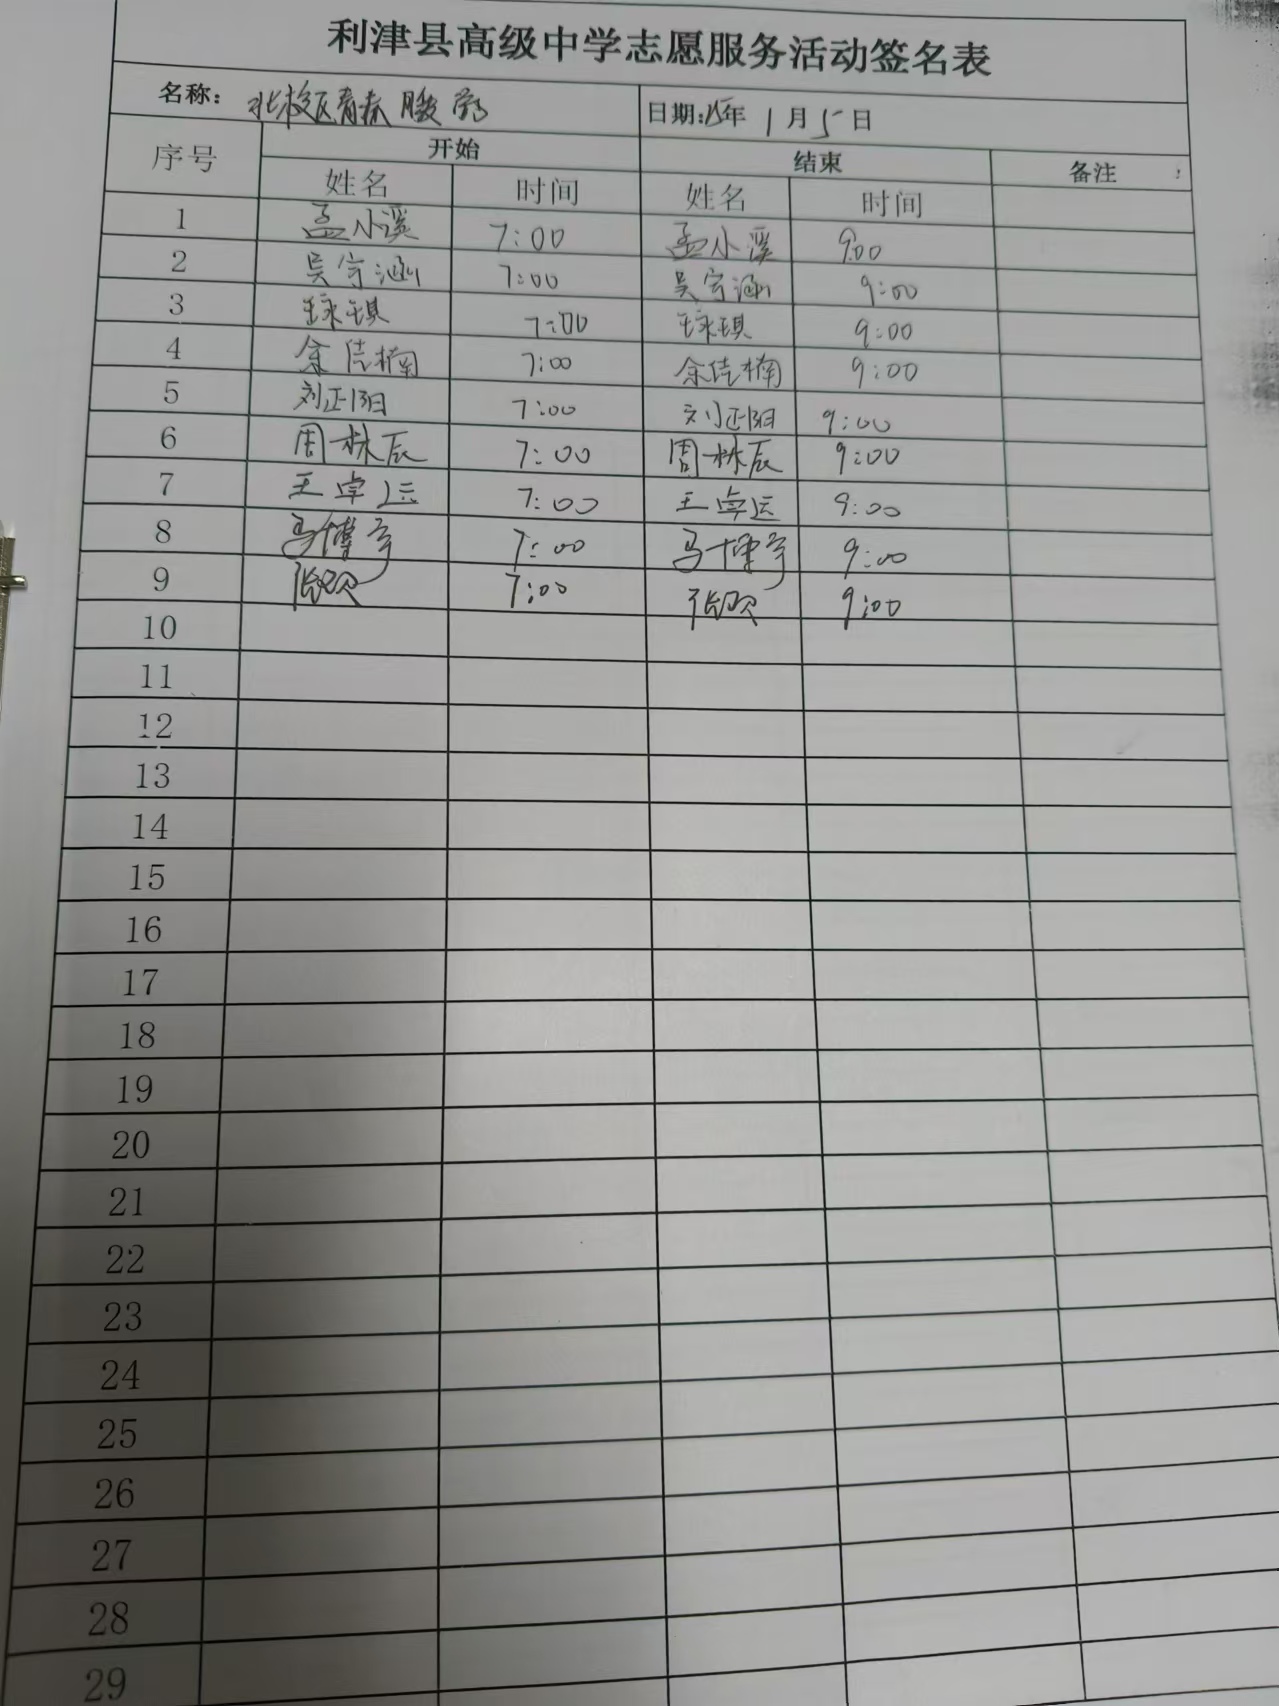 利津县高级中学志愿服务活动签名表
名称： 北校区青春服务 日期: 25年 1月5日
序号 开始 结束 备注
姓名 时间 姓名 时间
1 孟小溪 7:00 孟小溪 9:00
2 吴宇涵 7:00 吴宇涵 9:00
3 王泳琪 7:00 王泳琪 9:00
4 余佳楠 7:00 余佳楠 9:00
5 刘正阳 7:00 刘正阳 9:00
6 周林辰 7:00 周林辰 9:00
7 王卓运 7:00 王卓运 9:00
8 马博宇 7:00 马博宇 9:00
9 张欧 7:00 张欧 9:00
10
11
12
13
14
15
16
17
18
19
20
21
22
23
24
25
26
27
28
29